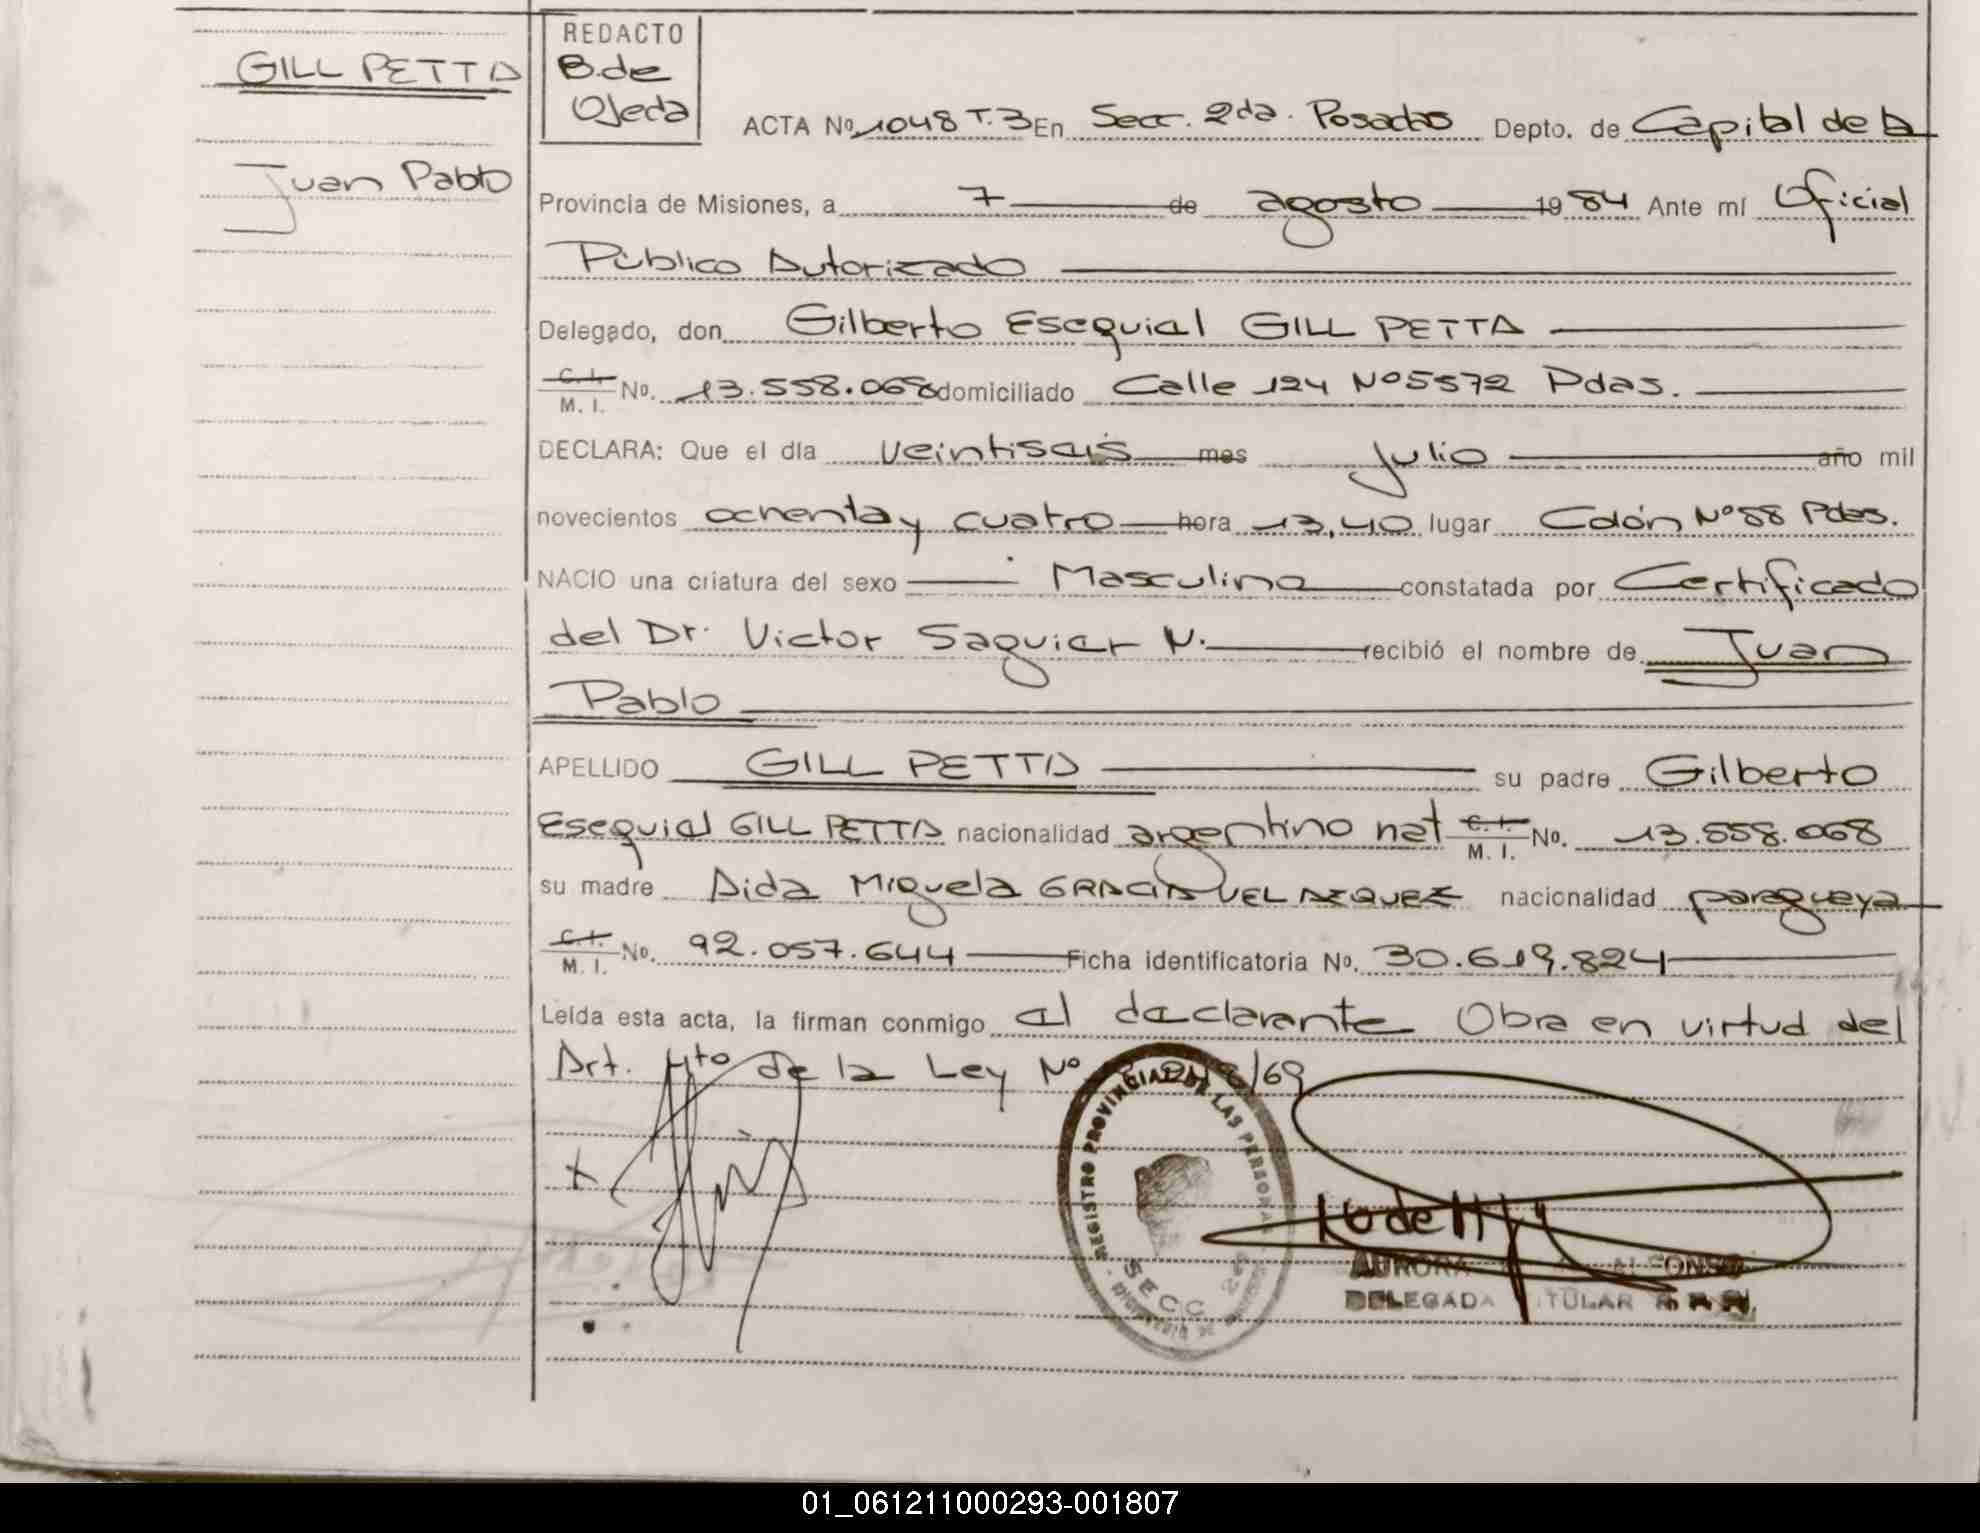 GILL PETTA
Juan Pablo
REDACTO
B. de
Ojeda
ACTA Nº 1048 T. 3 En Secc. 2da. Posadas Depto. de Capital de la
Provincia de Misiones, a 7 de agosto 1984 Ante mí Oficial
Público Autorizado
Delegado, don Gilberto Esequial GILL PETTA
C. I. M. I. No. 13.558.068 domiciliado Calle 124 Nº 5572 Pdas.
DECLARA: Que el día veintiseis mes julio año mil
novecientos ochenta y cuatro hora 13,40 lugar Colón Nº 88 Pdas.
NACIO una criatura del sexo Masculino constatada por Certificado
del Dr. Victor Saguier N. recibió el nombre de Juan
Pablo
APELLIDO GILL PETTA su padre Gilberto
Esequial GILL PETTA nacionalidad argentino nat C. I. M. I. No. 13.558.068
su madre Aida Miguela GRACIA VELAZQUEZ nacionalidad paraguaya
C. I. M. I. No. 92.057.644 Ficha identificatoria No. 30.619.824
Leída esta acta, la firman conmigo el declarante Obra en virtud del
Art. 4to de la Ley Nº /69
REGISTRO PROVINCIAL DE LAS PERSONAS
SECC 2da
AURORA ALFONSO
DELEGADA TITULAR
01_061211000293-001807